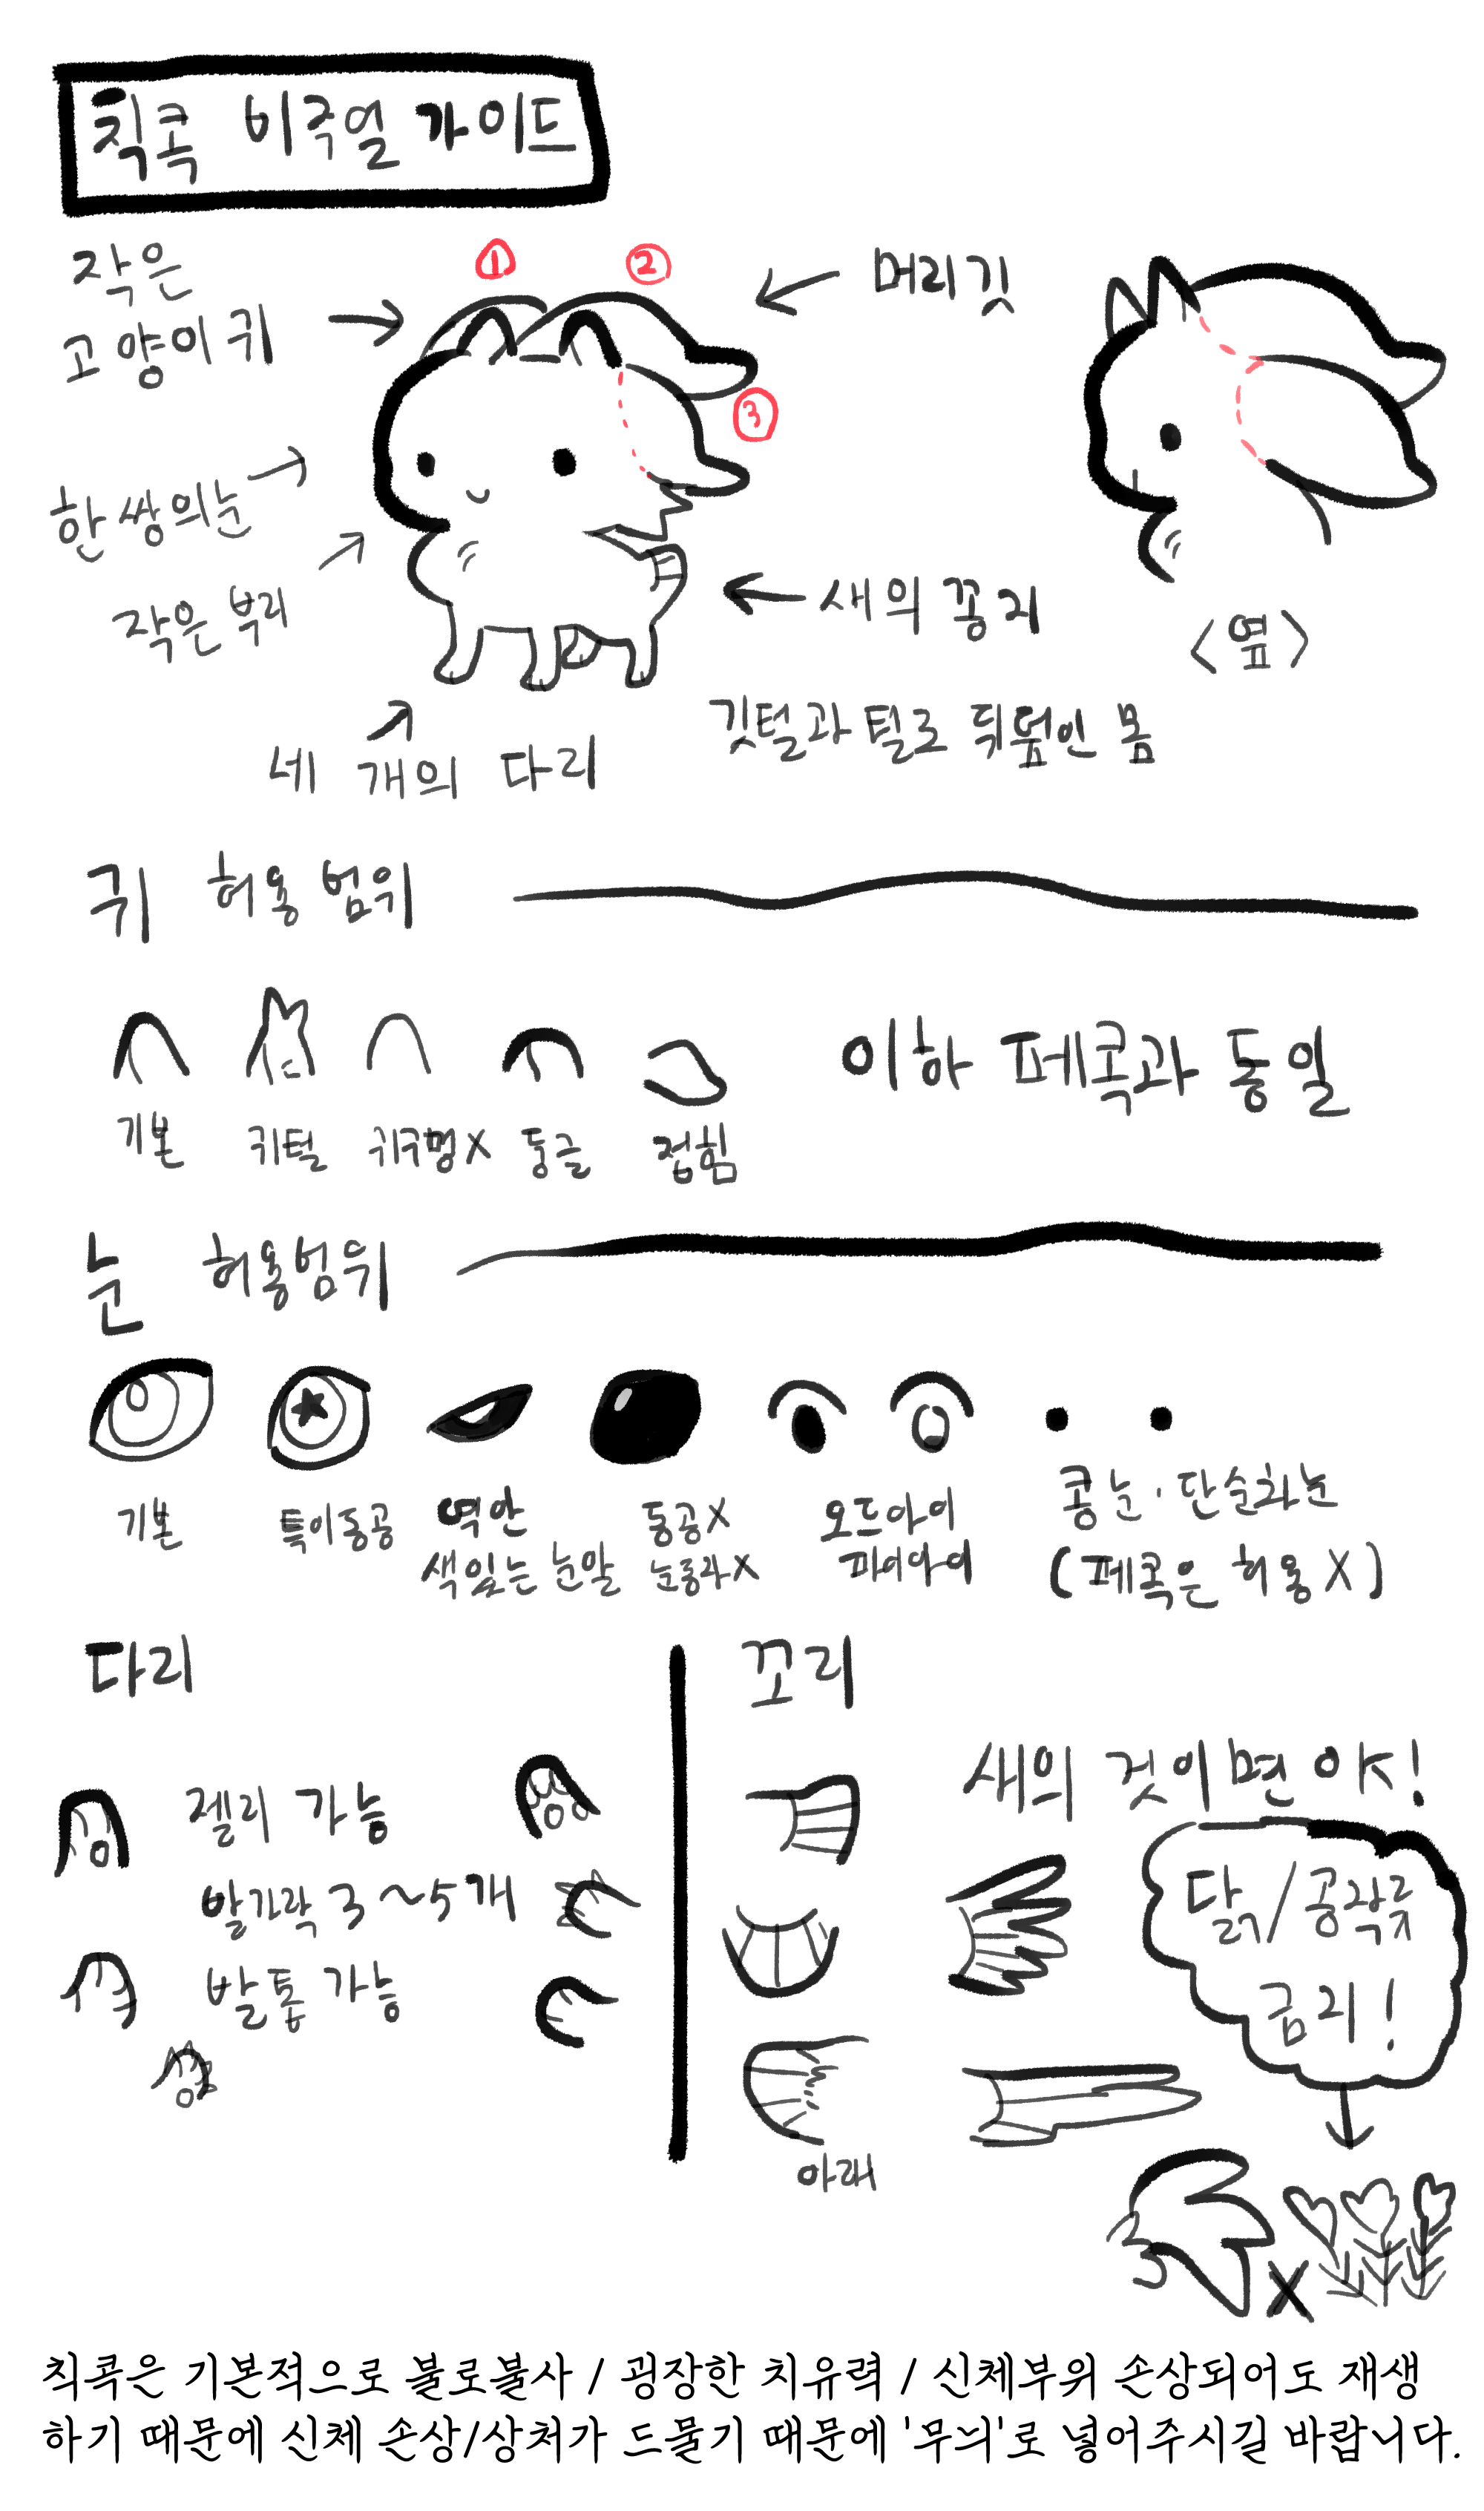 칙콕 비주얼 가이드
작은
고양이 귀
①
②
③
머리깃
한 쌍의 눈
작은 부리
새의 꽁리
<옆>
네 개의 다리
깃털과 털로 뒤덮인 몸
귀 허용 범위
기본
귀털
귀구멍X
둥글
접힘
이하 페콕과 동일
눈 허용범위
기본
특이동공
역안
색있는 눈알
동공X
눈동자X
오드아이
파이아이
콩눈·단순화눈
(페콕은 허용X)
다리
젤리 가능
발가락 3~5개
발톱 가능
꼬리
새의 것이면 OK!
닭/공작류
금지!
아래
X
칙콕은 기본적으로 불로불사 / 굉장한 치유력 / 신체부위 손상되어도 재생
하기 때문에 신체 손상/상처가 드물기 때문에 '무늬'로 넣어주시길 바랍니다.